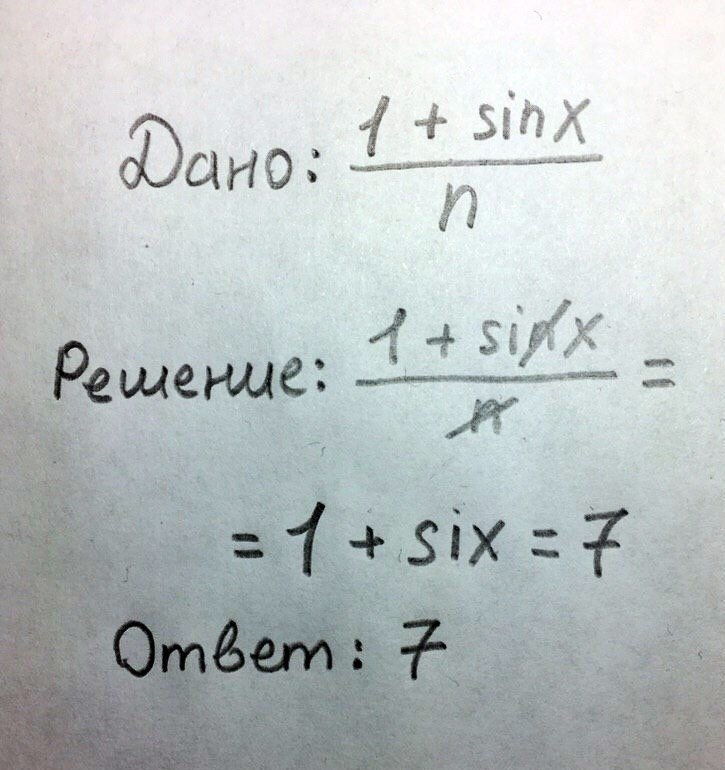 Дано: (1 + sinx)/n
Решение: (1 + sin̸x)/n̸ =
= 1 + six = 7
Ответ: 7